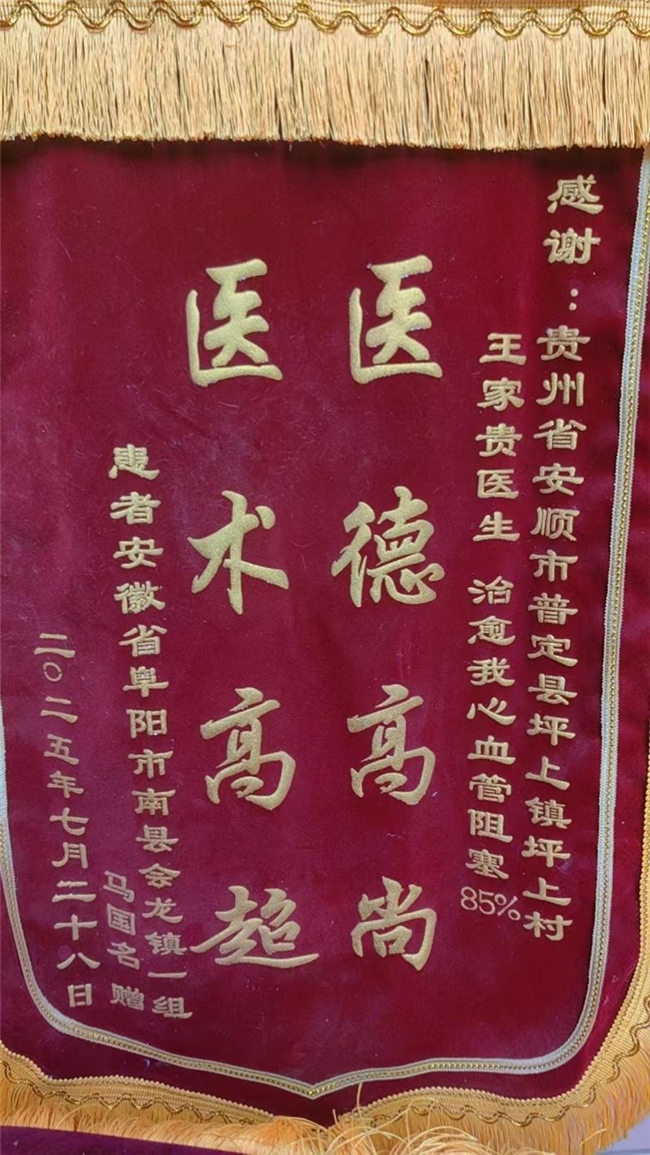 感谢：贵州省安顺市普定县坪上镇坪上村
王家贵医生 治愈我心血管阻塞85%
医德高尚
医术高超
患者安徽省阜阳市南县会龙镇一组
马国名 赠
二〇二五年七月二十八日